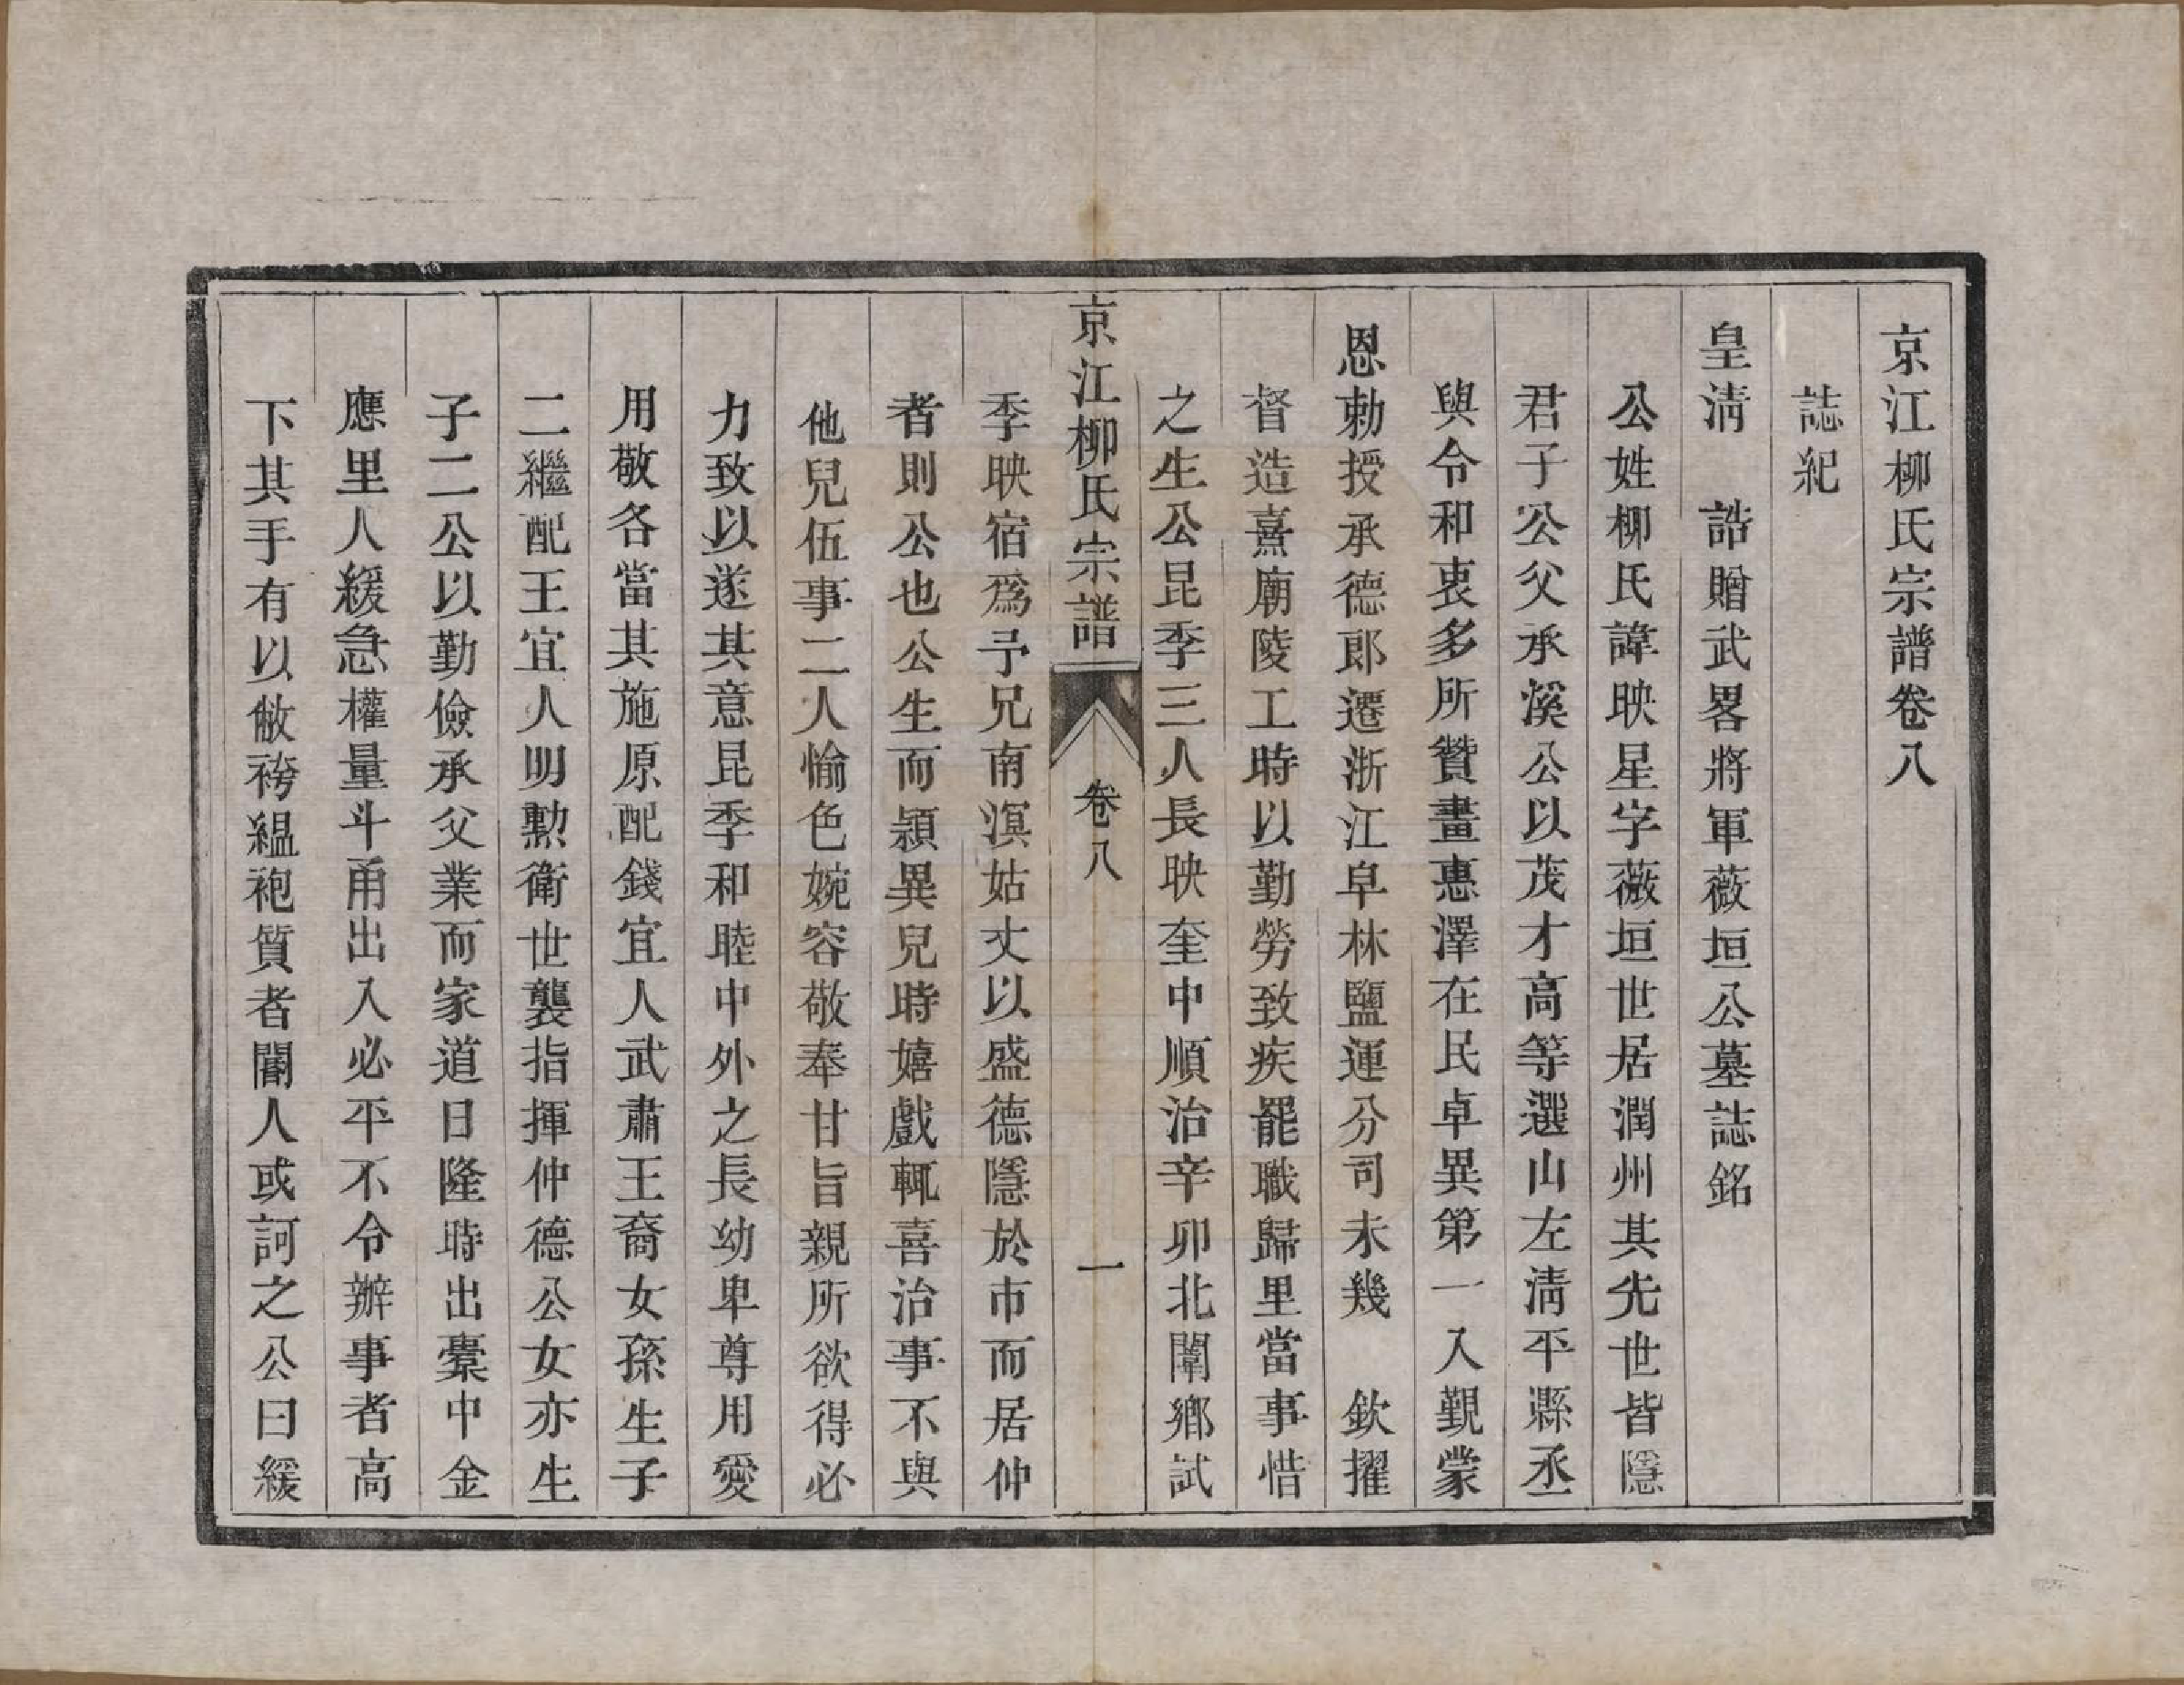 京江柳氏宗譜卷八
誌紀
皇淸　誥贈武畧將軍薇垣公墓誌銘
公姓柳氏諱映星字薇垣世居潤州其先世皆隱
君子公父承溪公以茂才高等選山左淸平縣丞
與令和衷多所贊畫惠澤在民卓異第一入覲蒙
恩勅授承德郎遷浙江皐林鹽運分司未幾　欽擢
督造熹廟陵工時以勤勞致疾罷職歸里當事惜
之生公昆季三人長映奎中順治辛卯北闈鄕試
京江柳氏宗譜　卷八　一
季映宿爲予兄南溟姑丈以盛德隱於市而居仲
者則公也公生而穎異兒時嬉戲輒喜治事不與
他兒伍事二人愉色婉容敬奉甘旨親所欲得必
力致以遂其意昆季和睦中外之長幼卑尊用愛
用敬各當其施原配錢宜人武肅王裔女孫生子
二繼配王宜人明勲衛世襲指揮仲德公女亦生
子二公以勤儉承父業而家道日隆時出橐中金
應里人緩急權量斗甬出入必平不令辦事者高
下其手有以敝袴縕袍質者闇人或訶之公曰緩